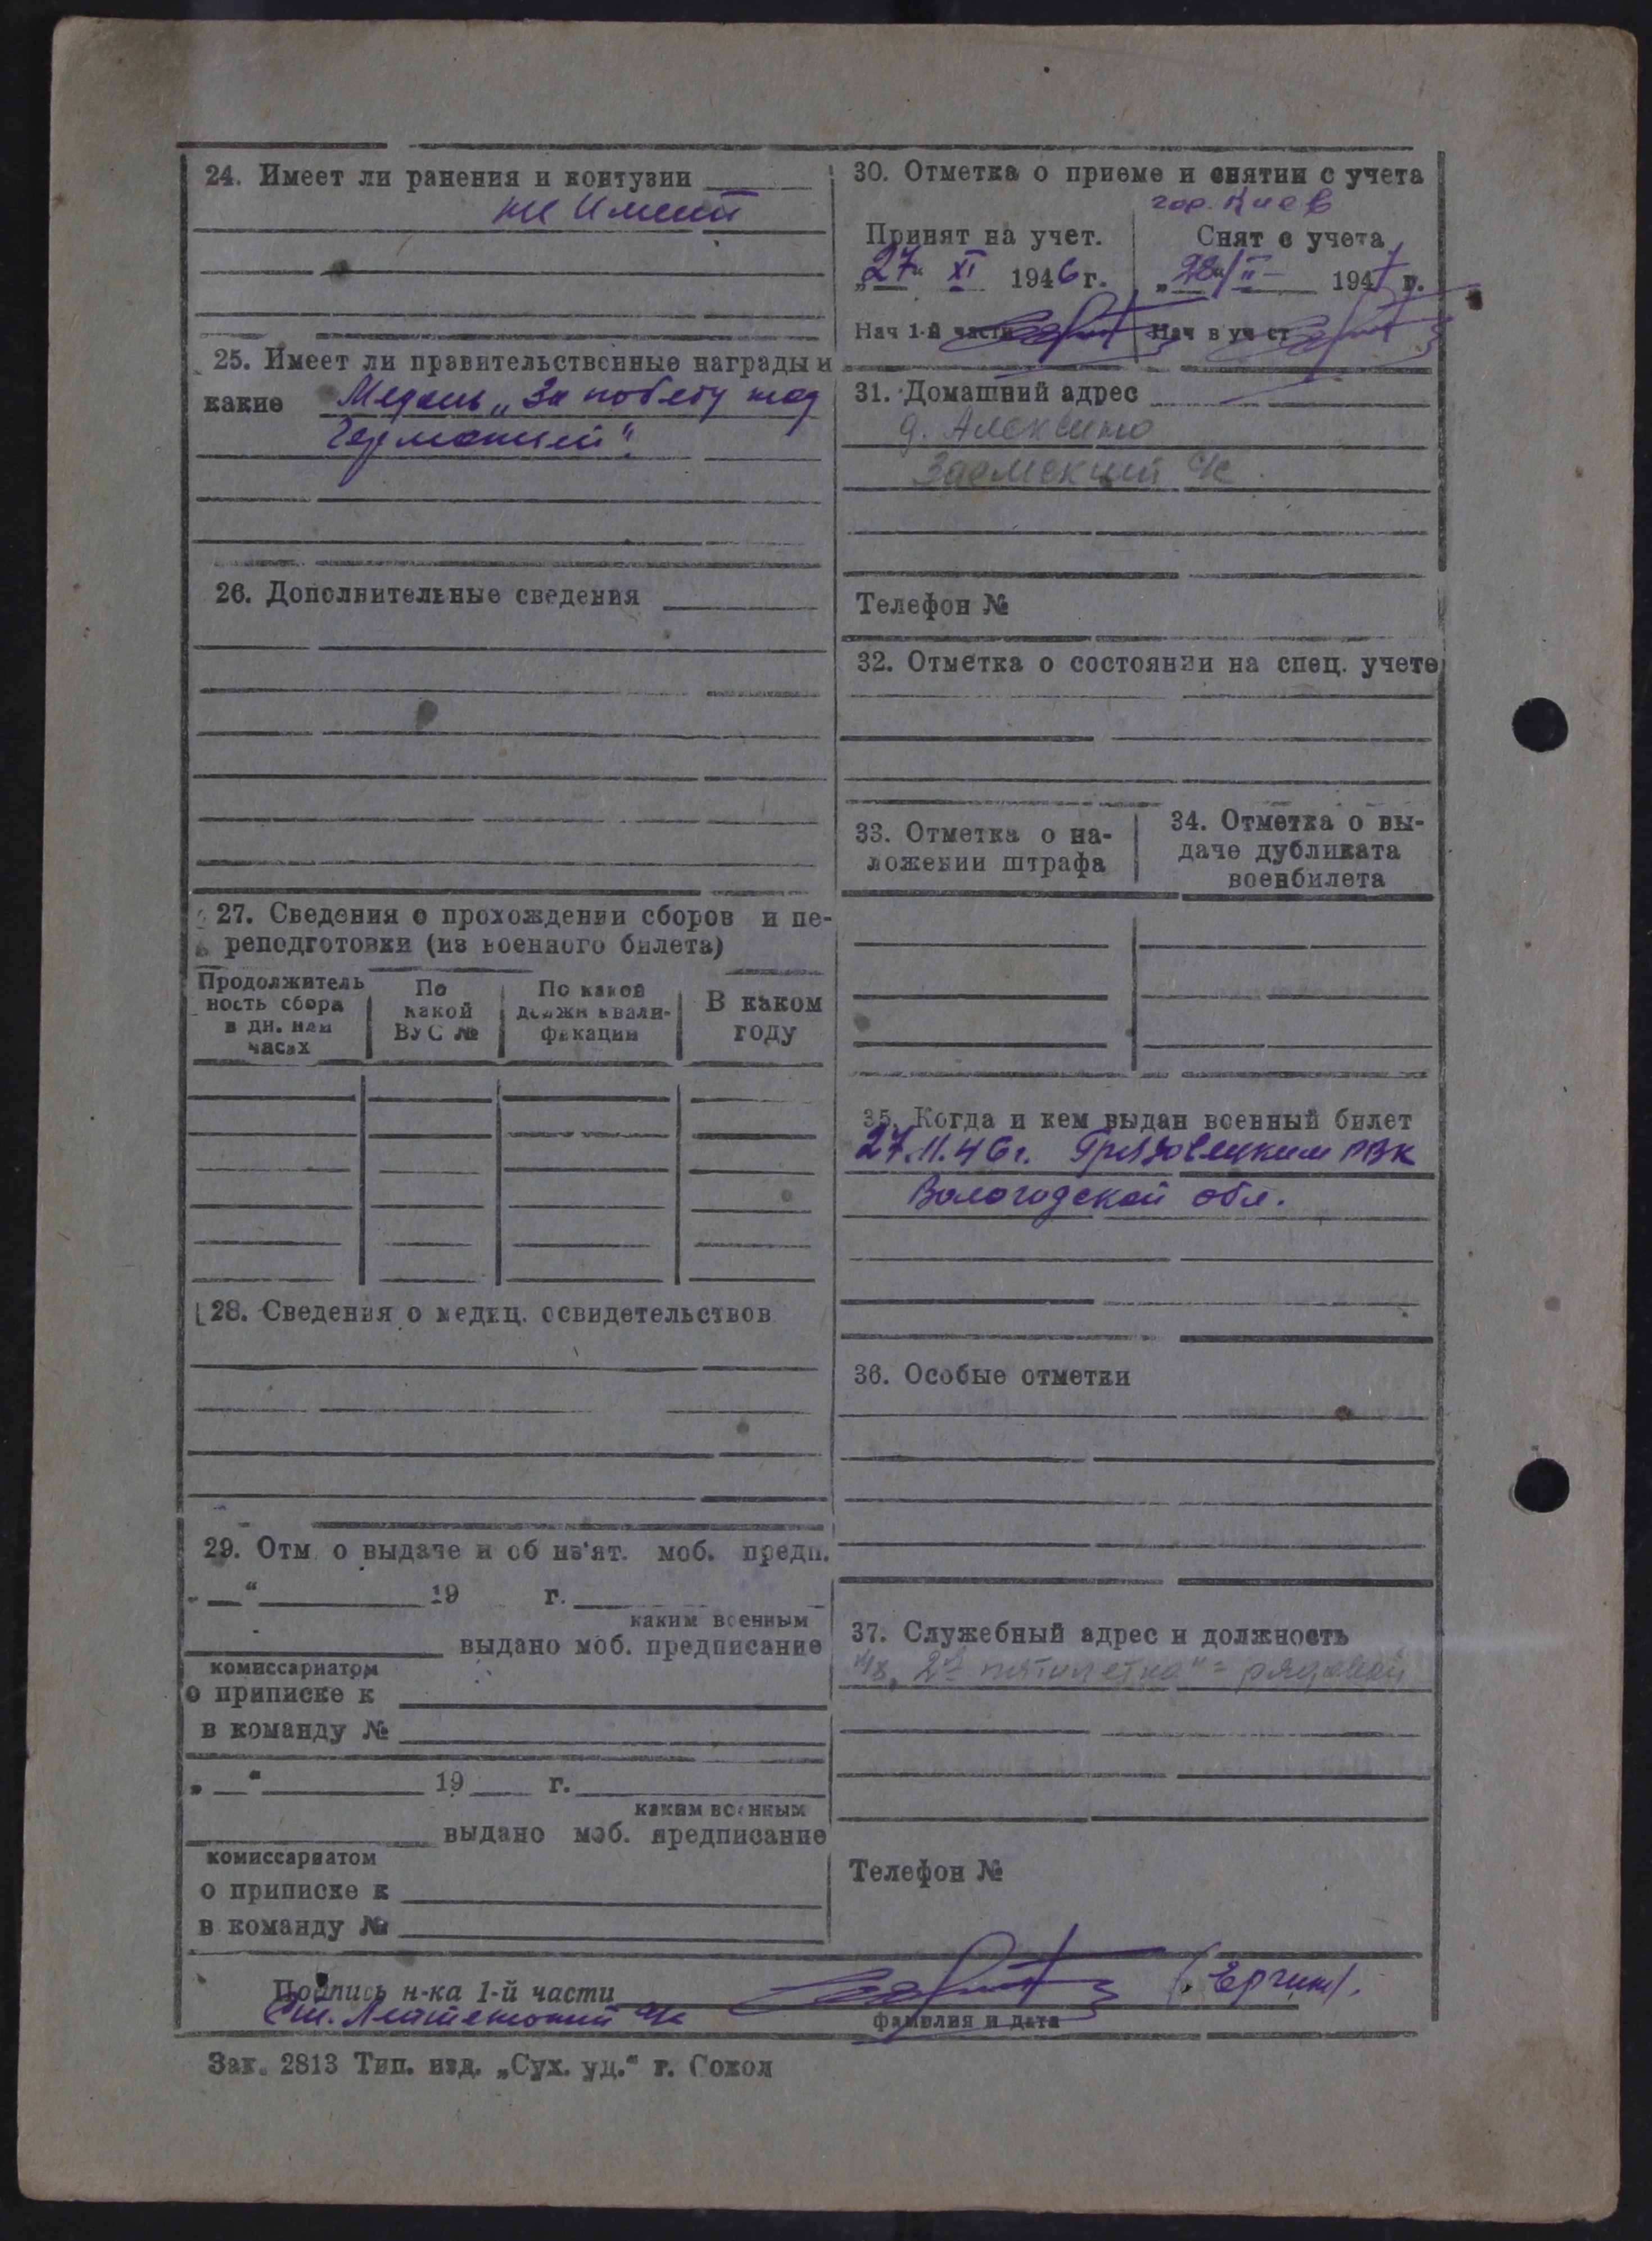 24. Имеет ли ранения и контузии
не имеет
25. Имеет ли правительственные награды и
какие Медаль „За победу над
Германией“.
26. Дополнительные сведения
27. Сведения о прохождении сборов и пе-
реподготовки (из военного билета)
Продолжитель
ность сбора
в дн. или
часах
По
какой
ВУС №
По какой
должн квали-
фикации
В каком
году
28. Сведения о медиц. освидетельствов
29. Отм. о выдаче и об из'ят. моб. предп.
„ “ 19 г.
каким военным
выдано моб. предписание
комиссариатом
о приписке к
в команду №
„ “ 19 г.
каким военным
выдано моб. предписание
комиссариатом
о приписке к
в команду №
30. Отметка о приеме и снятии с учета
гор. Киев
Принят на учет.
„27“ XI 1946 г.
Нач 1-й части
Снят с учета
„28“ II 1947 г.
Нач в уч ст
31. Домашний адрес
д. Алексино
Заемский с/с
Телефон №
32. Отметка о состоянии на спец. учете
33. Отметка о на-
ложении штрафа
34. Отметка о вы-
даче дубликата
военбилета
35. Когда и кем выдан военный билет
27.11.46г. Грязовецким РВК
Вологодской обл.
36. Особые отметки
37. Служебный адрес и должность
„2я пятилетка“ = рядовой
Телефон №
Подпись н-ка 1-й части
Ст. Лейтенант
фамилия и дата
Зак. 2813 Тип. изд. „Сух. уд.“ г. Сокол